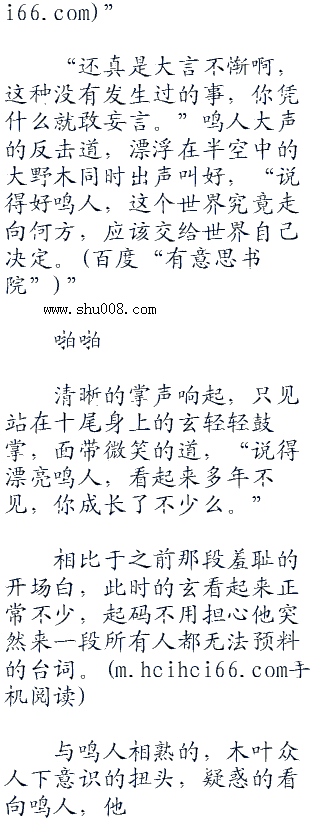 i66.com)”
“还真是大言不惭啊，
这种没有发生过的事，你凭
什么就敢妄言。”鸣人大声
的反击道，漂浮在半空中的
大野木同时出声叫好，“说
得好鸣人，这个世界究竟走
向何方，应该交给世界自己
决定。(百度“有意思书
院”)”
www.shu008.com
啪啪
清晰的掌声响起，只见
站在十尾身上的玄轻轻鼓
掌，面带微笑的道，“说得
漂亮鸣人，看起来多年不
见，你成长了不少么。”
相比于之前那段羞耻的
开场白，此时的玄看起来正
常不少，起码不用担心他突
然来一段所有人都无法预料
的台词。(m.hcihci66.com手
机阅读)
与鸣人相熟的，木叶众
人下意识的扭头，疑惑的看
向鸣人，他